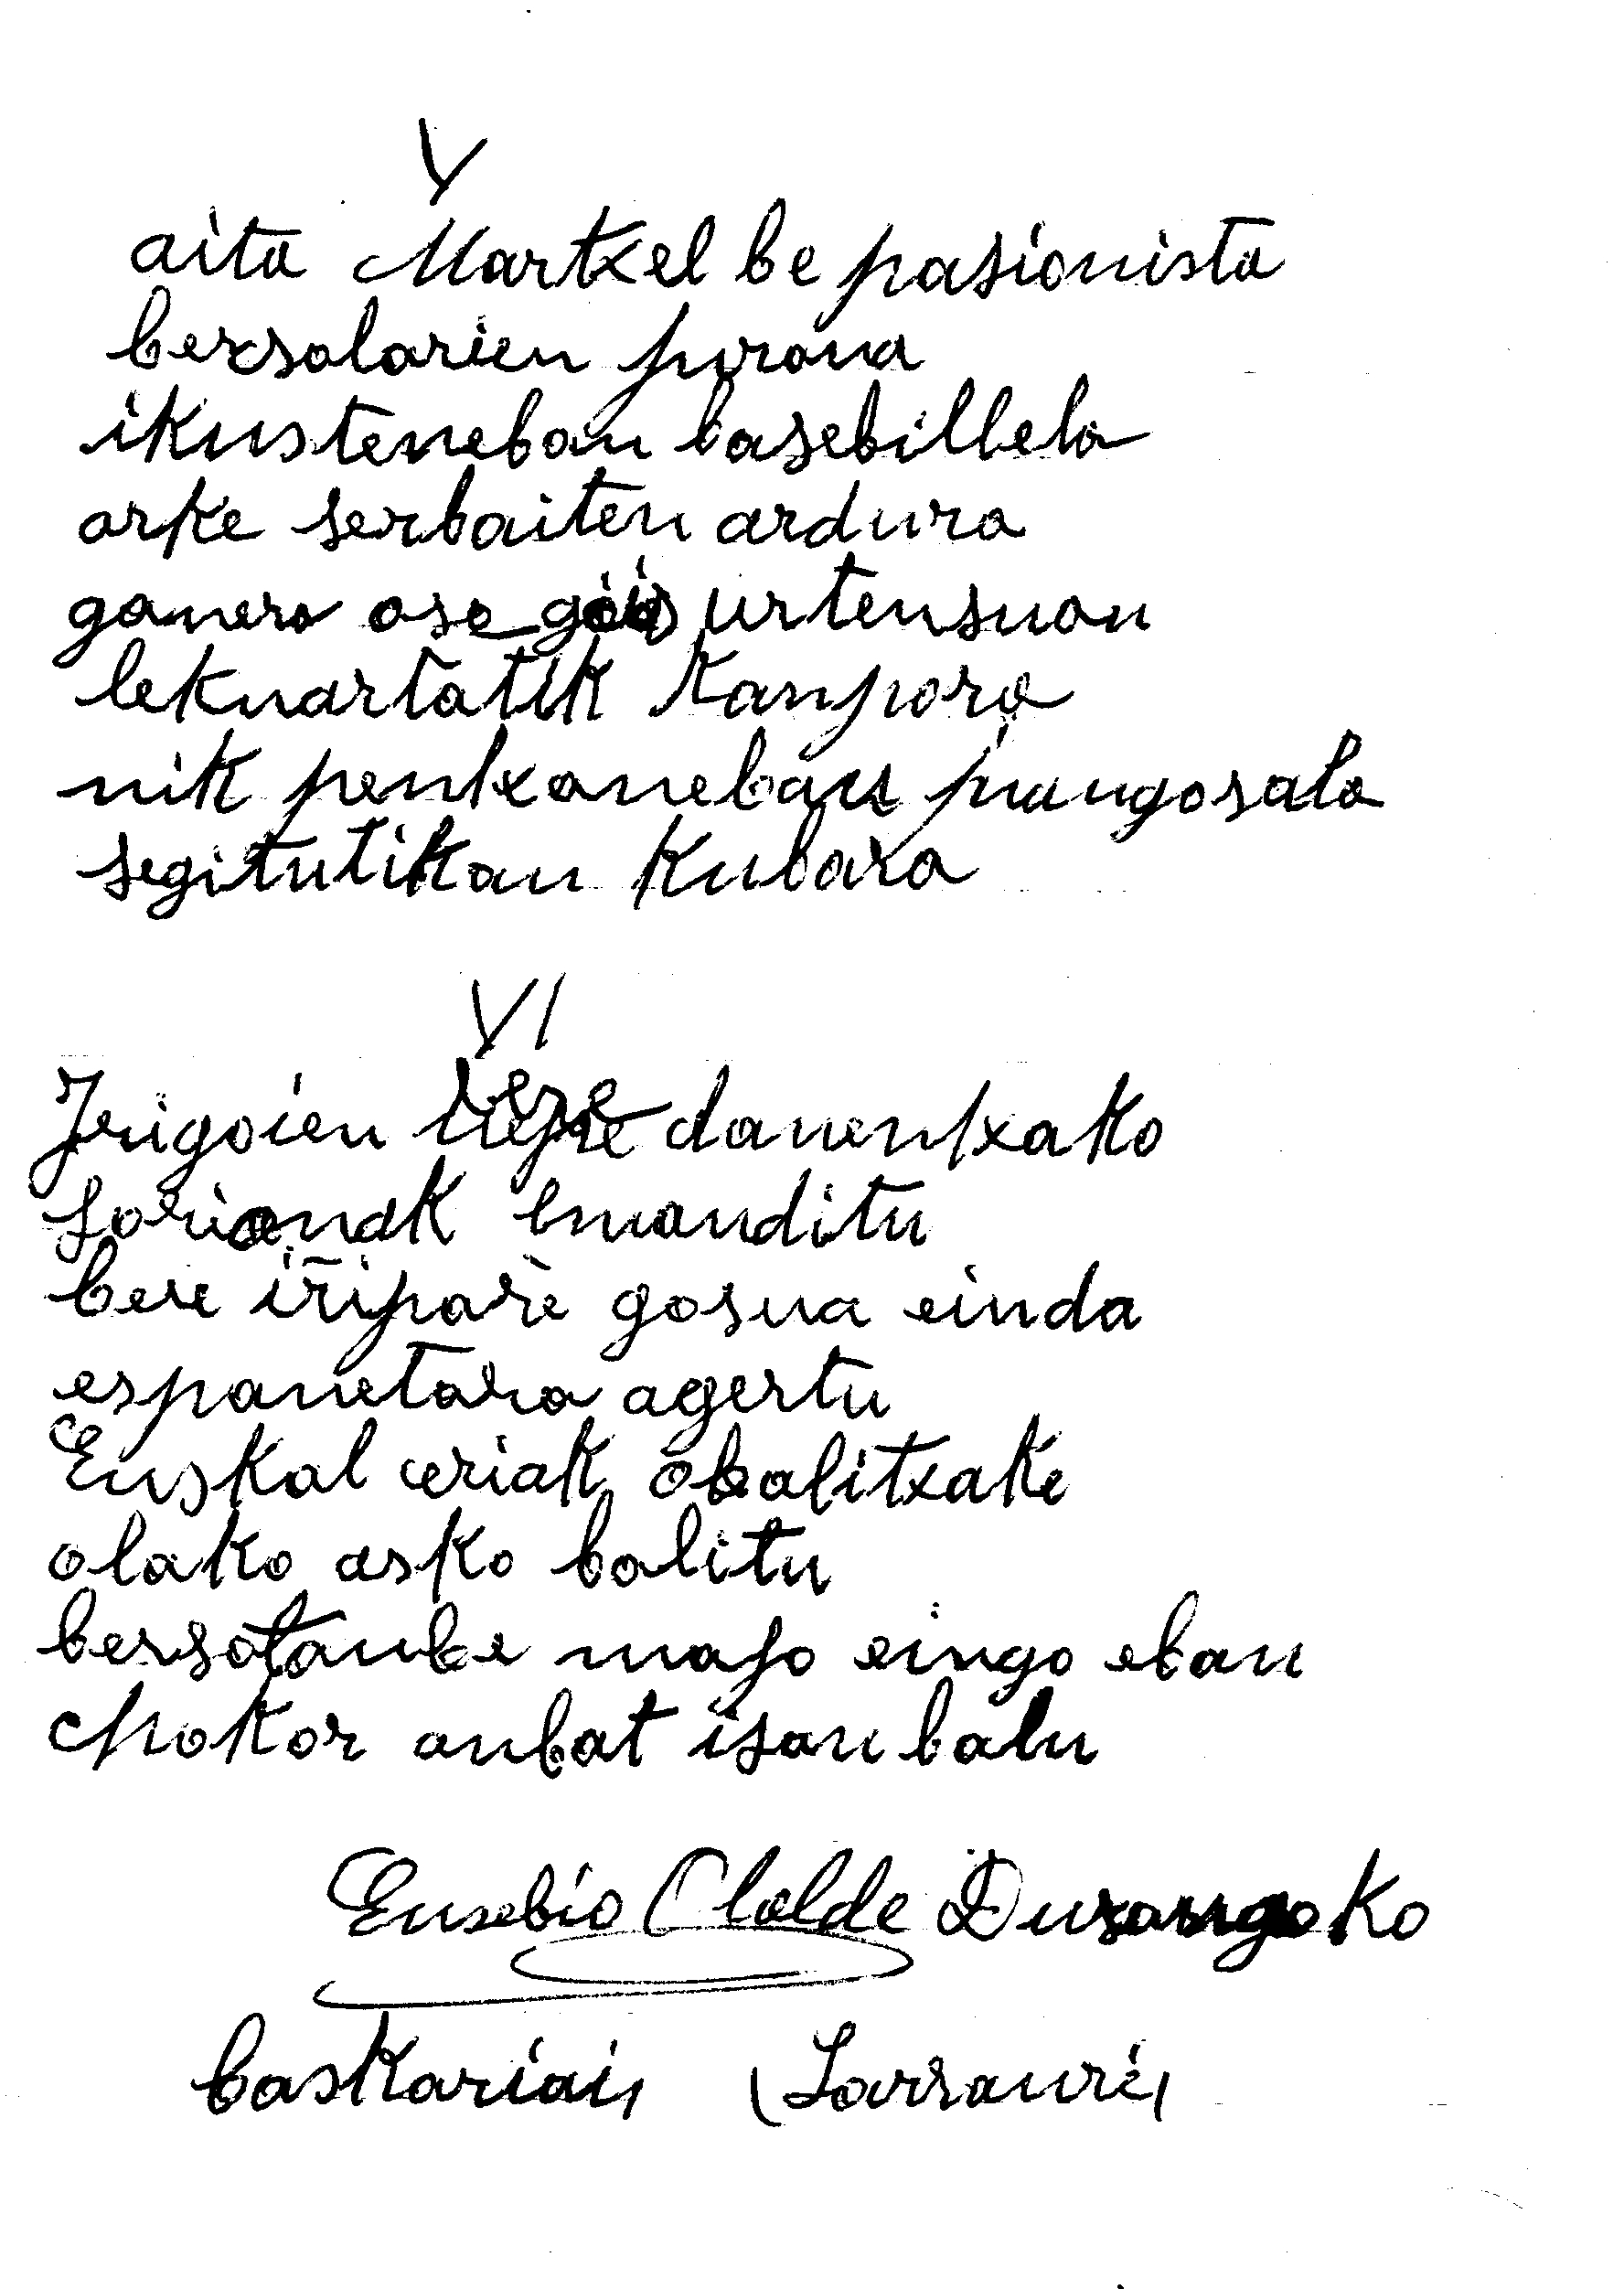 V
aita Martxel be pasionista
bersolarien purana
ikusteneban basebillela
arke serbaiten ardura
ganera oso gois urtensuan
lekuartatik kanpora
nik pentxaneban juangosala
segitutikan Kubara
VI
Jrigoien bere danentxako
sorionak emanditu
bere iñiparre gosua einda
espanetara agertu
Euskal eriak obalitxake
olako asko balitu
bersotanbe majo eingo eban
chokor anbat isan balu
Eusebio Olalde Durangoko
baskariais (Larrauri)